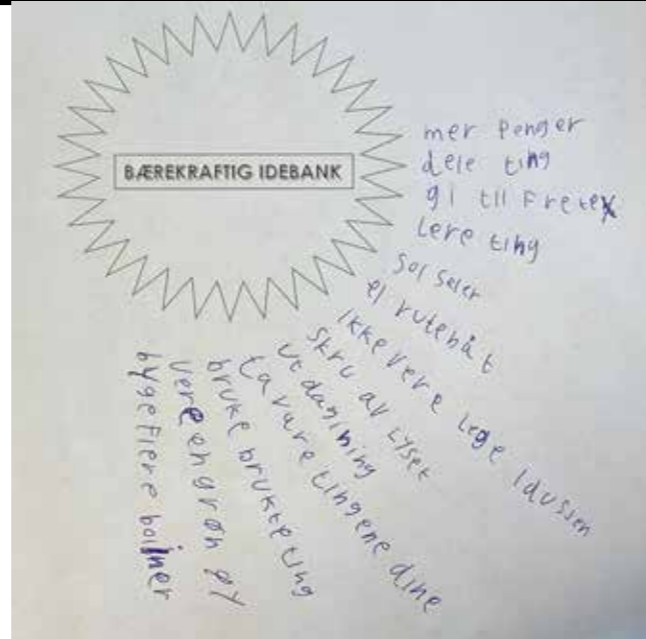 BÆREKRAFTIG IDEBANK
mer Penger
dele ting
gi til Fretex
Lere ting
Sol seler
el rutebåt
ikke vere lege i dussen
skru av Lyset
utdanining
ta vare tingene dine
bruke brukte ting
vere en grøn øy
byge flere